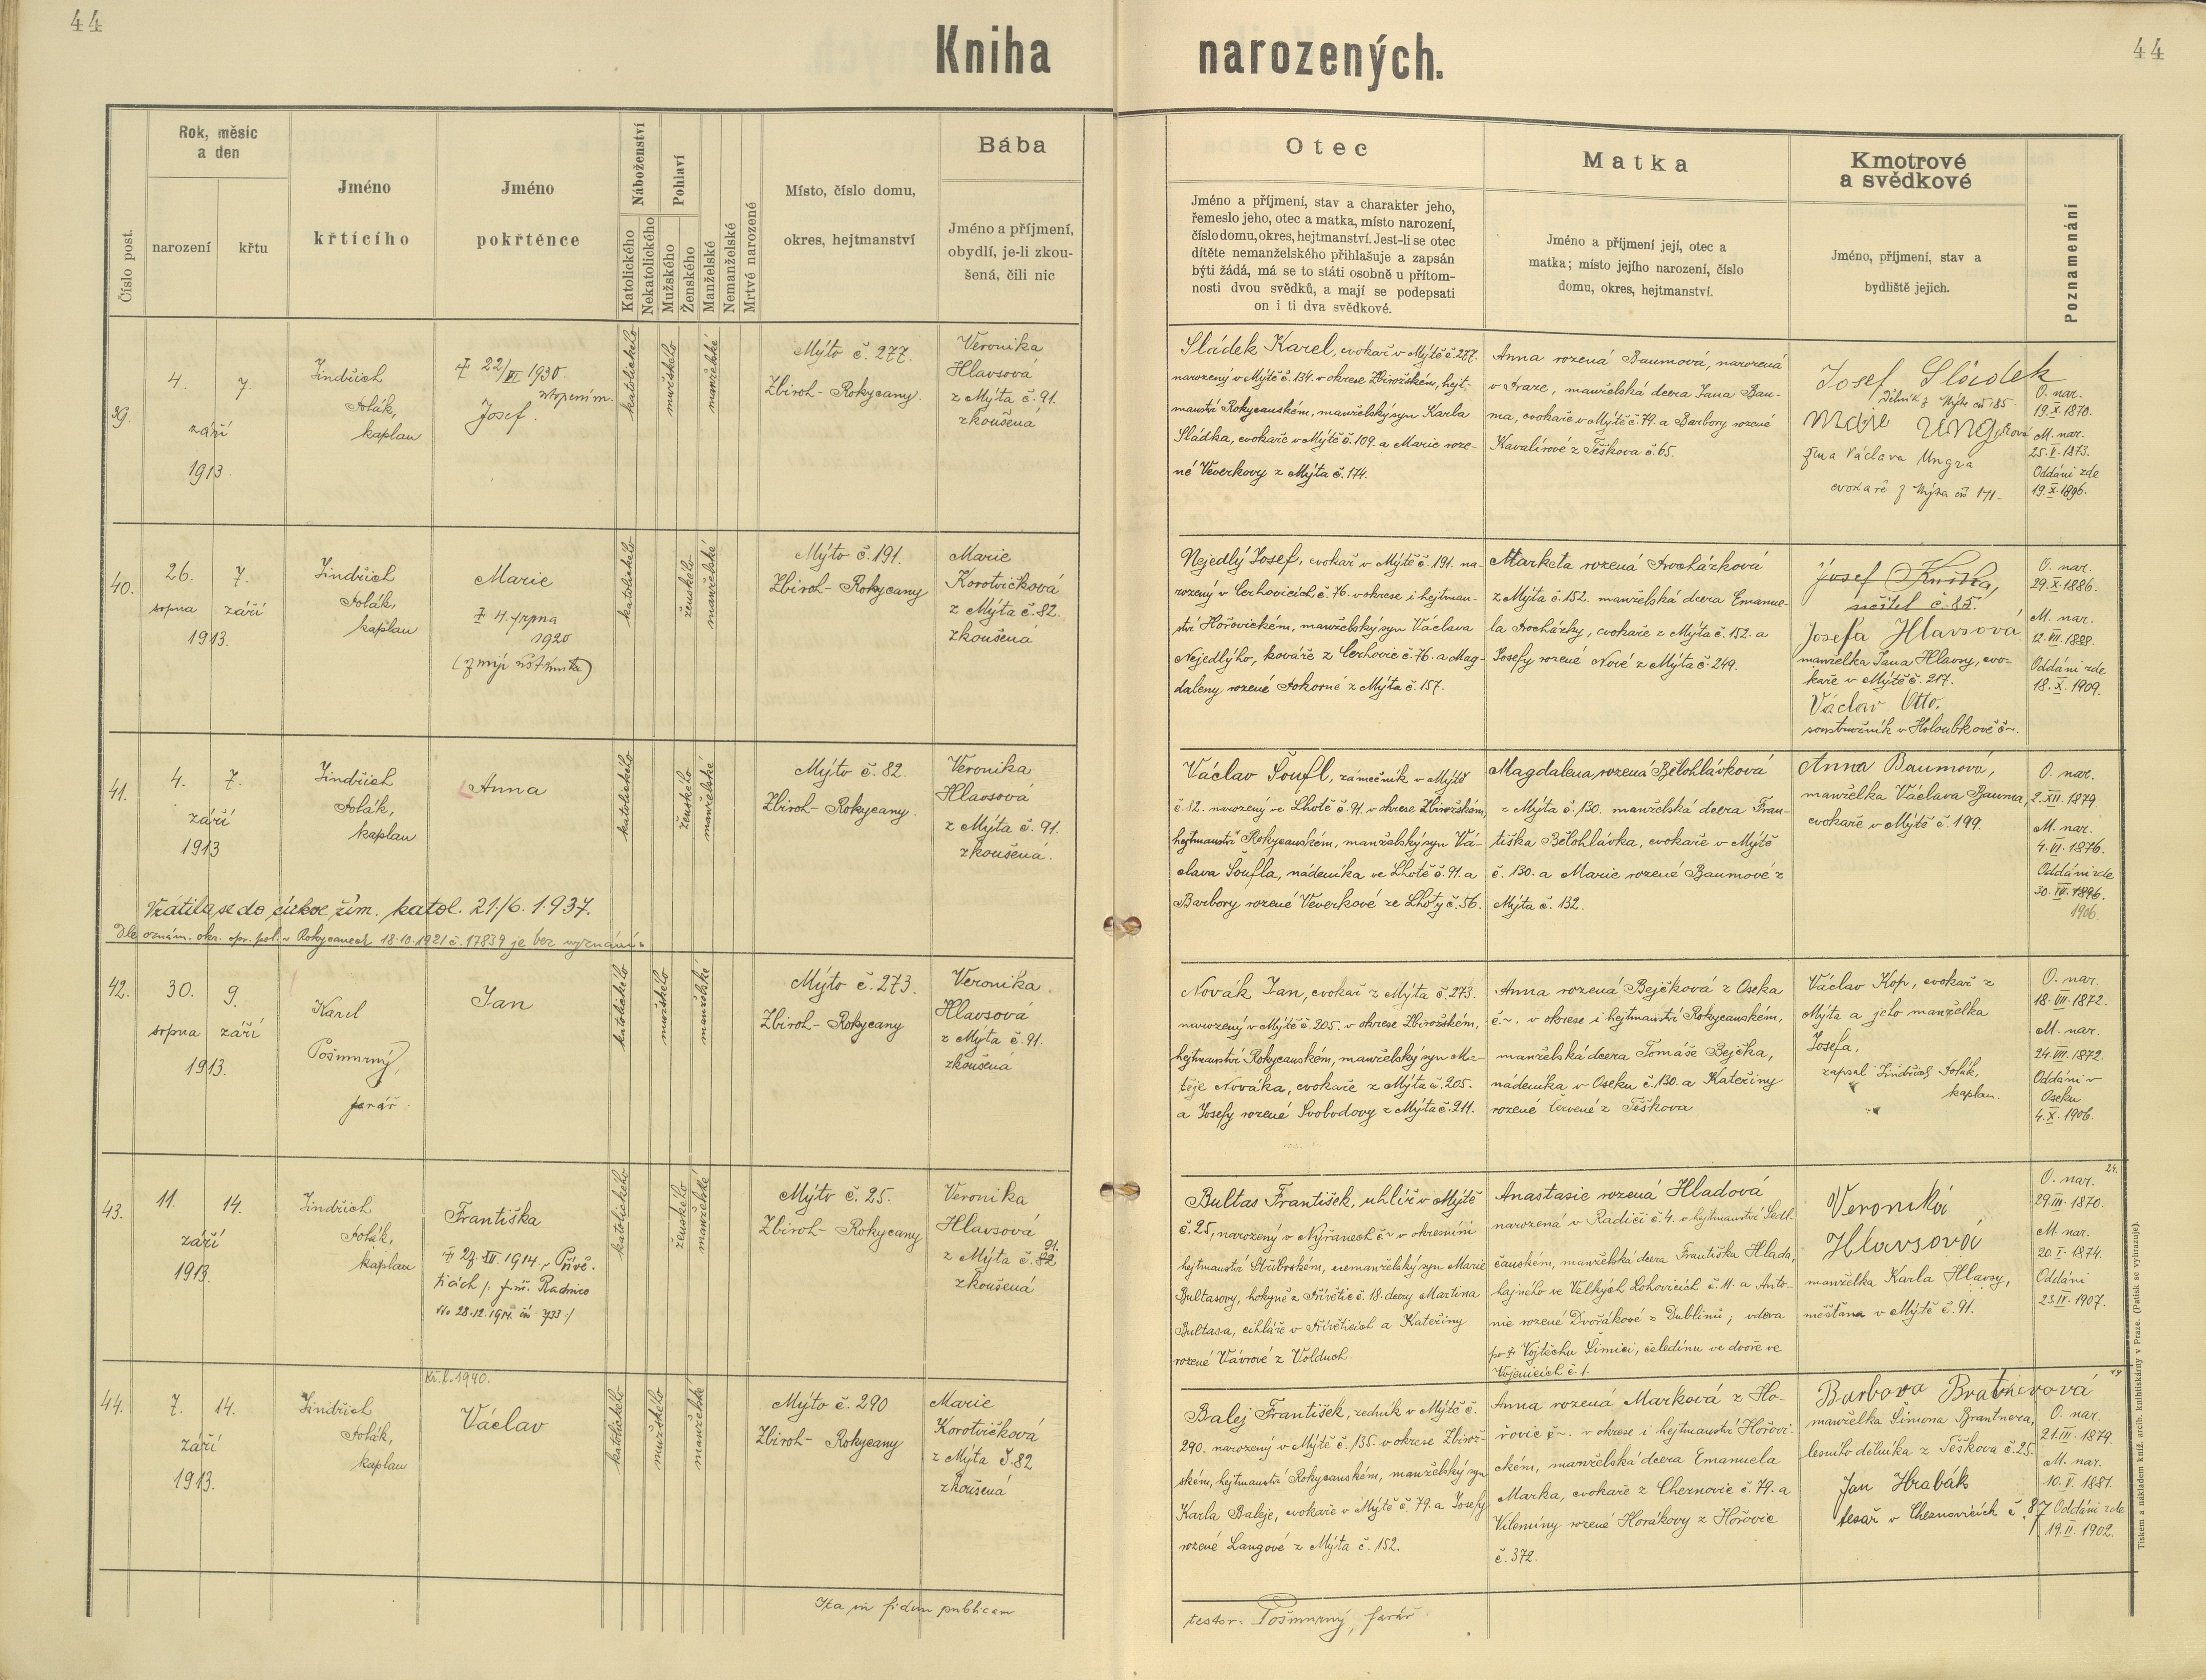 44
Kniha narozených.
44
Číslo post.
Rok, měsíc
a den
narození
křtu
Jméno
křtícího
Jméno
pokřtěnce
Náboženství
Katolického
Nekatolického
Pohlaví
Mužského
Ženského
Manželské
Nemanželské
Mrtvě narozené
Místo, číslo domu,
okres, hejtmanství
Bába
Jméno a příjmení,
obydlí, je-li zkou-
šená, čili nic
Otec
Jméno a příjmení, stav a charakter jeho,
řemeslo jeho, otec a matka, místo narození,
číslo domu, okres, hejtmanství. Jest-li se otec
dítěte nemanželského přihlašuje a zapsán
býti žádá, má se to státi osobně u přítom-
nosti dvou svědků, a mají se podepsati
on i ti dva svědkové.
Matka
Jméno a příjmení její, otec a
matka; místo jejího narození, číslo
domu, okres, hejtmanství.
Kmotrové
a svědkové
Jméno, příjmení, stav a
bydliště jejich.
Poznamenání
39.
4. 7
září
1913.
Jindřich
Polák,
kaplan
22/ 1930.
Josef.
katolického
mužského
manželské
Mýto č. 277.
Zbiroh-Rokycany.
Veronika
Hlavsová
z Mýta č. 91.
zkoušená
Sládek Karel, cvokař v Mýtě č. 277.
narozený v Mýtě č. 134. v okrese Zbirožském, hejt-
manství Rokycanském, manželský syn Karla
Sládka, cvokaře v Mýtě č. 109. a Marie roze-
né Veverkovy z Mýta č. 174.
Anna rozená Baumová, narozená
v Praze, manželská dcera Jana Bau-
ma, cvokaře v Mýtě č. 79. a Barbory rozené
Kavalírové z Těškova č. 65.
Josef Sládek
dělník z Mýta čís 85
Marie Ungrová
žena Václava Ungra
cvokaře z Mýta čís 171-
O. nar.
19.X.1870.
M. nar.
25.V.1873.
Oddáni zde
19.X.1896.
40.
26. 7.
srpna září
1913.
Jindřich
Polák,
kaplan
Marie
4. srpna
1920
katolického
ženského
manželské
Mýto č. 191.
Zbiroh-Rokycany
Marie
Korotvičková
z Mýta č. 82.
zkoušená
Nejedlý Josef, cvokař v Mýtě č. 191. na-
rozený v Cerhovicích č. 76. v okrese i hejtman-
ství Hořovickém, manželský syn Václava
Nejedlýho, kováře z Cerhovic č. 76. a Mag-
daleny rozené Pokorné z Mýta č. 157.
Marketa rozená Procházková
z Mýta č. 152. manželská dcera Emanue-
la Procházky, cvokaře z Mýta č. 152. a
Josefy rozené Nové z Mýta č. 249.
Josef
učitel č. 85.
Josefa Hlavsová
manželka Jana Hlavsy, cvo-
kaře v Mýtě č. 217.
Václav Otto,
soustružník v Holoubkově č~.
O. nar.
29.X.1886.
M. nar.
12.VII.1888.
Oddáni zde
18.X.1909.
41.
4. 7.
září
1913
Jindřich
Polák,
kaplan
Anna
katolického
ženského
manželské
Mýto č. 82.
Zbiroh-Rokycany.
Veronika
Hlavsová
z Mýta č. 91.
zkoušená.
Vrátila se do církve řím. katol. 21./6. 1937.
Dle oznám. okr. spr. pol. v Rokycanech 18.10.1921 č. 17839 je bez vyznání.
Václav Šoufl, zámečník v Mýtě
č. 12. narozený ve Lhotě č. 91. v okrese Zbirožském,
hejtmanství Rokycanském, manželský syn Vá-
clava Šoufla, nádeníka ve Lhotě č. 91. a
Barbory rozené Veverkové ze Lhoty č. 56.
Magdalena, rozená Bělohlávková
z Mýta č. 130. manželská dcera Fran-
tiška Bělohlávka, cvokaře v Mýtě
č. 130. a Marie rozené Baumové z
Mýta č. 132.
Anna Baumová,
manželka Václava Bauma,
cvokaře v Mýtě č. 199.
O. nar.
2.XII.1879.
M. nar.
4.VI.1876.
Oddáni zde
30.IV.1896.
1906.
42.
30. 9.
srpna září
1913.
Karel
Pošmurný,
farář.
Jan
katolického
mužského
manželské
Mýto č. 273.
Zbiroh-Rokycany
Veronika
Hlavsová
z Mýta č. 91.
zkoušená
Novák Jan, cvokař z Mýta č. 273.
narozený v Mýtě č. 205. v okrese Zbirožském,
hejtmanství Rokycanském, manželský syn Ma-
těje Nováka, cvokaře z Mýta č. 205.
a Josefy rozené Svobodovy z Mýta č. 211.
Anna rozená Bejčková z Oseka
č.~. v okrese i hejtmanství Rokycanském,
manželská dcera Tomáše Bejčka,
nádeníka v Oseku č. 130. a Kateřiny
rozené Červené z Těškova
Václav Kop, cvokař z
Mýta a jeho manželka
Josefa.
zapsal Jindřich Polák,
kaplan.
O. nar.
18.VIII.1872.
M. nar.
24.VII.1872.
Oddáni v
Oseku
4.X.1906.
43.
11. 14.
září
1913.
Jindřich
Polák,
kaplan
Františka
29.XII.1914 v Přívě-
ticích
katolického
ženského
manželské
Mýto č. 25.
Zbiroh-Rokycany
Veronika
Hlavsová
91.
z Mýta č. 82
zkoušená
Bultas František, uhlíř v Mýtě
č. 25, narozený v Nýřanech č~ v okresním
hejtmanství Stříbrském, nemanželský syn Marie
Bultasovy, hokyně z Přívětic č. 18. dcery Martina
Bultasa, cihláře v Přívěticích a Kateřiny
rozené Vávrové z Volduch.
Anastasie rozená Hladová
narozená v Radíči č. 4. v hejtmanství Sedl-
čanském, manželská dcera Františka Hlada,
hajného ve Velkých Lohovicích č. 11. a Anto-
nie rozené Dvořákové z Dublinů; vdova
po † Vojtěchu Šimici, čeledínu ve dvoře ve
Vojenicích č. 1.
Veronika
Hlavsová
manželka Karla Hlavsy,
měšťana v Mýtě č. 91.
O. nar. 24.
29.III.1870.
M. nar.
20.I.1874.
Oddáni
23.IV.1907.
44.
7. 14.
září
1913.
Jindřich
Polák,
kaplan
Kř. l. 1940.
Václav
katolického
mužského
manželské
Mýto č. 290
Zbiroh-Rokycany
Marie
Korotvičková
z Mýta č. 82
zkoušená
Balej František, zedník v Mýtě č.
290. narozený v Mýtě č. 135. v okrese Zbirož-
ském, hejtmanství Rokycanském, manželský syn
Karla Baleje, cvokaře v Mýtě č. 79. a Josefy
rozené Langové z Mýta č. 152.
Anna rozená Marková z Ho-
řovic č~. v okrese i hejtmanství Hořovi-
ckém, manželská dcera Emanuela
Marka, cvokaře z Cheznovic č. 79. a
Vilemíny rozené Horákovy z Hořovic
č. 372.
Barbora Brantnerová
manželka Šimona Brantnera,
lesního dělníka z Těškova č. 25.
Jan Hrabák
tesař v Cheznovicích č. 87
O. nar.
21.III.1879.
M. nar.
10.V.1881.
Oddáni zde
19.II.1902.
Ita in fidem publicam
testor: Pošmurný, farář
Tiskem a nákladem kníž. arcib. knihtiskárny v Praze. (Patisk se vyhrazuje).